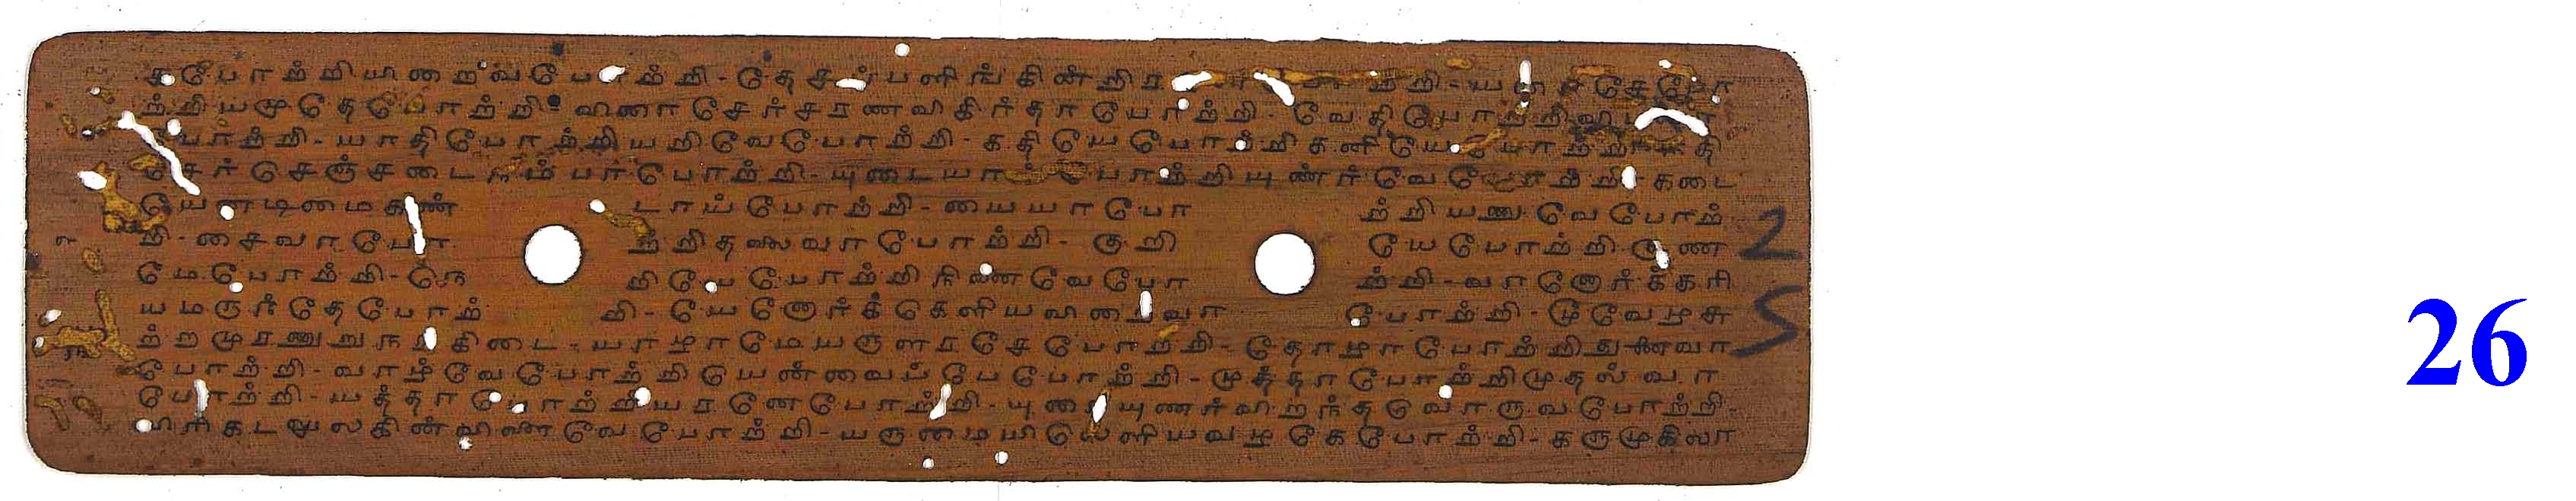 கபோற்றியிறைவபோற்றி-தேசப்பளிங்கின்றிர ற்றி-யரைசேபோ
ற்றியமுதேபோற்றி விரைசேர்சரணவிகிர்தாபோற்றி-வேதிபோற்றிவிமலா
போற்றி-யாதிபோற்றியறிவேபோற்றி-கதியேபோற்றிகனியேபோற்றி நதி
சேர்செஞ்சடைநம்பர்போற்றி-யுடையாய்போற்றியுணர்வேபோற்றி-கடை
யேனடிமைகண் டாய்போற்றி-யையாபோ ற்றியணுவேபோற்
றி-சைவாபோ ற்றிதலைவாபோற்றி-குறி யேபோற்றி-குண
மேபோற்றி-நெ றியேபோற்றிநினைவேபோ ற்றி-வானோர்க்கரி
யமருந்தேபோற் றி-யேனோர்க்கெளியவிறைவா போற்றி-மூவேழசு
ற்றமுரணுறுநரகிடை-யாழாமேயருளரசேபோற்றி-தோழாபோற்றிதுணைவா
போற்றி-வாழ்வேபோற்றியென்வைப்பேபோற்றி-முத்தாபோற்றிமுதல்வா
போற்றி-யத்தாபோற்றியரனேபோற்றி-யுரையுணர்விறந்தவொருவபோற்றி-
விரிகடலுலகின்விளைவேபோற்றி-யருமையிலெளியவழகேபோற்றி-கருமுகிலா
2
5
26